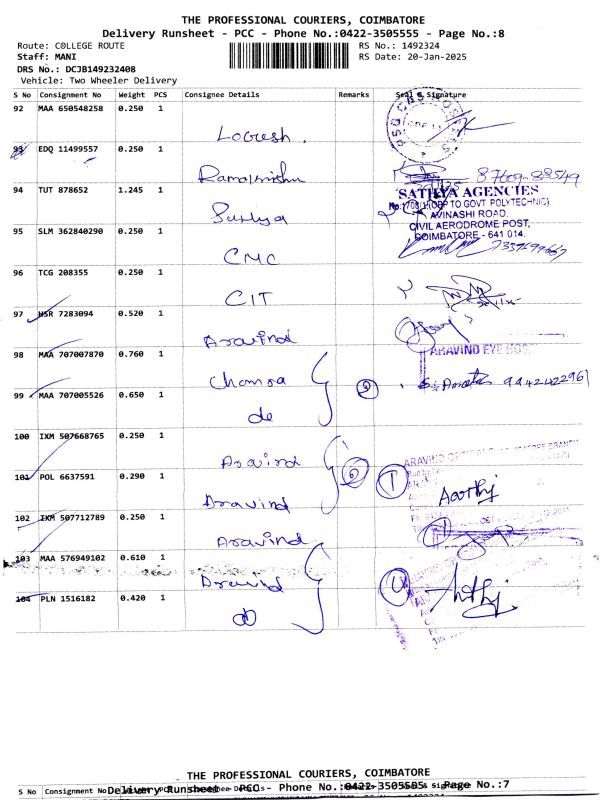 THE PROFESSIONAL COURIERS, COIMBATORE
Delivery Runsheet - PCC - Phone No.:0422-3505555 - Page No.:8
Route: COLLEGE ROUTE
RS No.: 1492324
Staff: MANI
RS Date: 20-Jan-2025
DRS No.: DCJB149232408
Vehicle: Two Wheeler Delivery
S No Consignment No Weight PCS Consignee Details Remarks Seal & Signature
92 MAA 650548258 0.250 1
Logesh.
93 EDQ 11499557 0.250 1
Ramakrishna
87609-88549
94 TUT 878652 1.245 1
Sathya
SATHYA AGENCIES
(OPP TO GOVT POLYTECHNIC)
AVINASHI ROAD.
CIVIL AERODROME POST,
COIMBATORE - 641 014.
95 SLM 362840290 0.250 1
CMC
96 TCG 208355 0.250 1
CIT
97 HSR 7283094 0.520 1
Aravind
ARAVIND EYE HOS
98 MAA 707007870 0.760 1
99 MAA 707005526 0.650 1
9442422961
do
100 IXM 507668765 0.250 1
Aravind
101 POL 6637591 0.290 1
Aravind
Aarthi
102 IXM 507712789 0.250 1
Aravind
103 MAA 576949102 0.610 1
Aravind
104 PLN 1516182 0.420 1
THE PROFESSIONAL COURIERS, COIMBATORE
Delivery Runsheet - PCC - Phone No.:0422-3505555 - Page No.:7
S No Consignment No